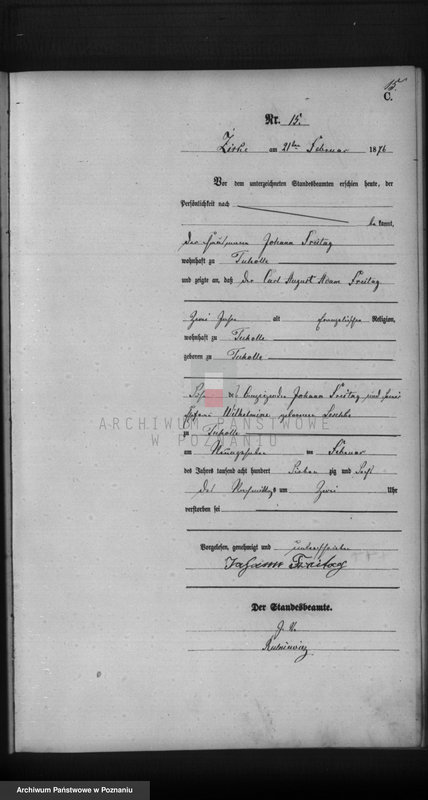 15.
C.
Nr. 15.
Zirke am 21ten Februar 1876
Vor dem unterzeichneten Standesbeamten erschien heute, der
Persönlichkeit nach
bekannt,
der Johann Freitag
wohnhaft zu Tucholle
und zeigte an, daß der Carl August Adam Freitag
Zwei Jahre alt evangelischer Religion,
wohnhaft zu Tucholle
geboren zu Tucholle
Sohn des Anzeigenden Johann Freitag und
Wilhelmine geborenen
zu Tucholle
ARCHIWUM PAŃSTWOWE
W POZNANIU
am Neunzehnten Februar
des Jahres tausend acht hundert Sieben zig und Sechs
des Nachmittags um Zwei Uhr
verstorben sei
Vorgelesen, genehmigt und unterschrieben
Johann Freitag
Der Standesbeamte.
J. V.
Archiwum Państwowe w Poznaniu